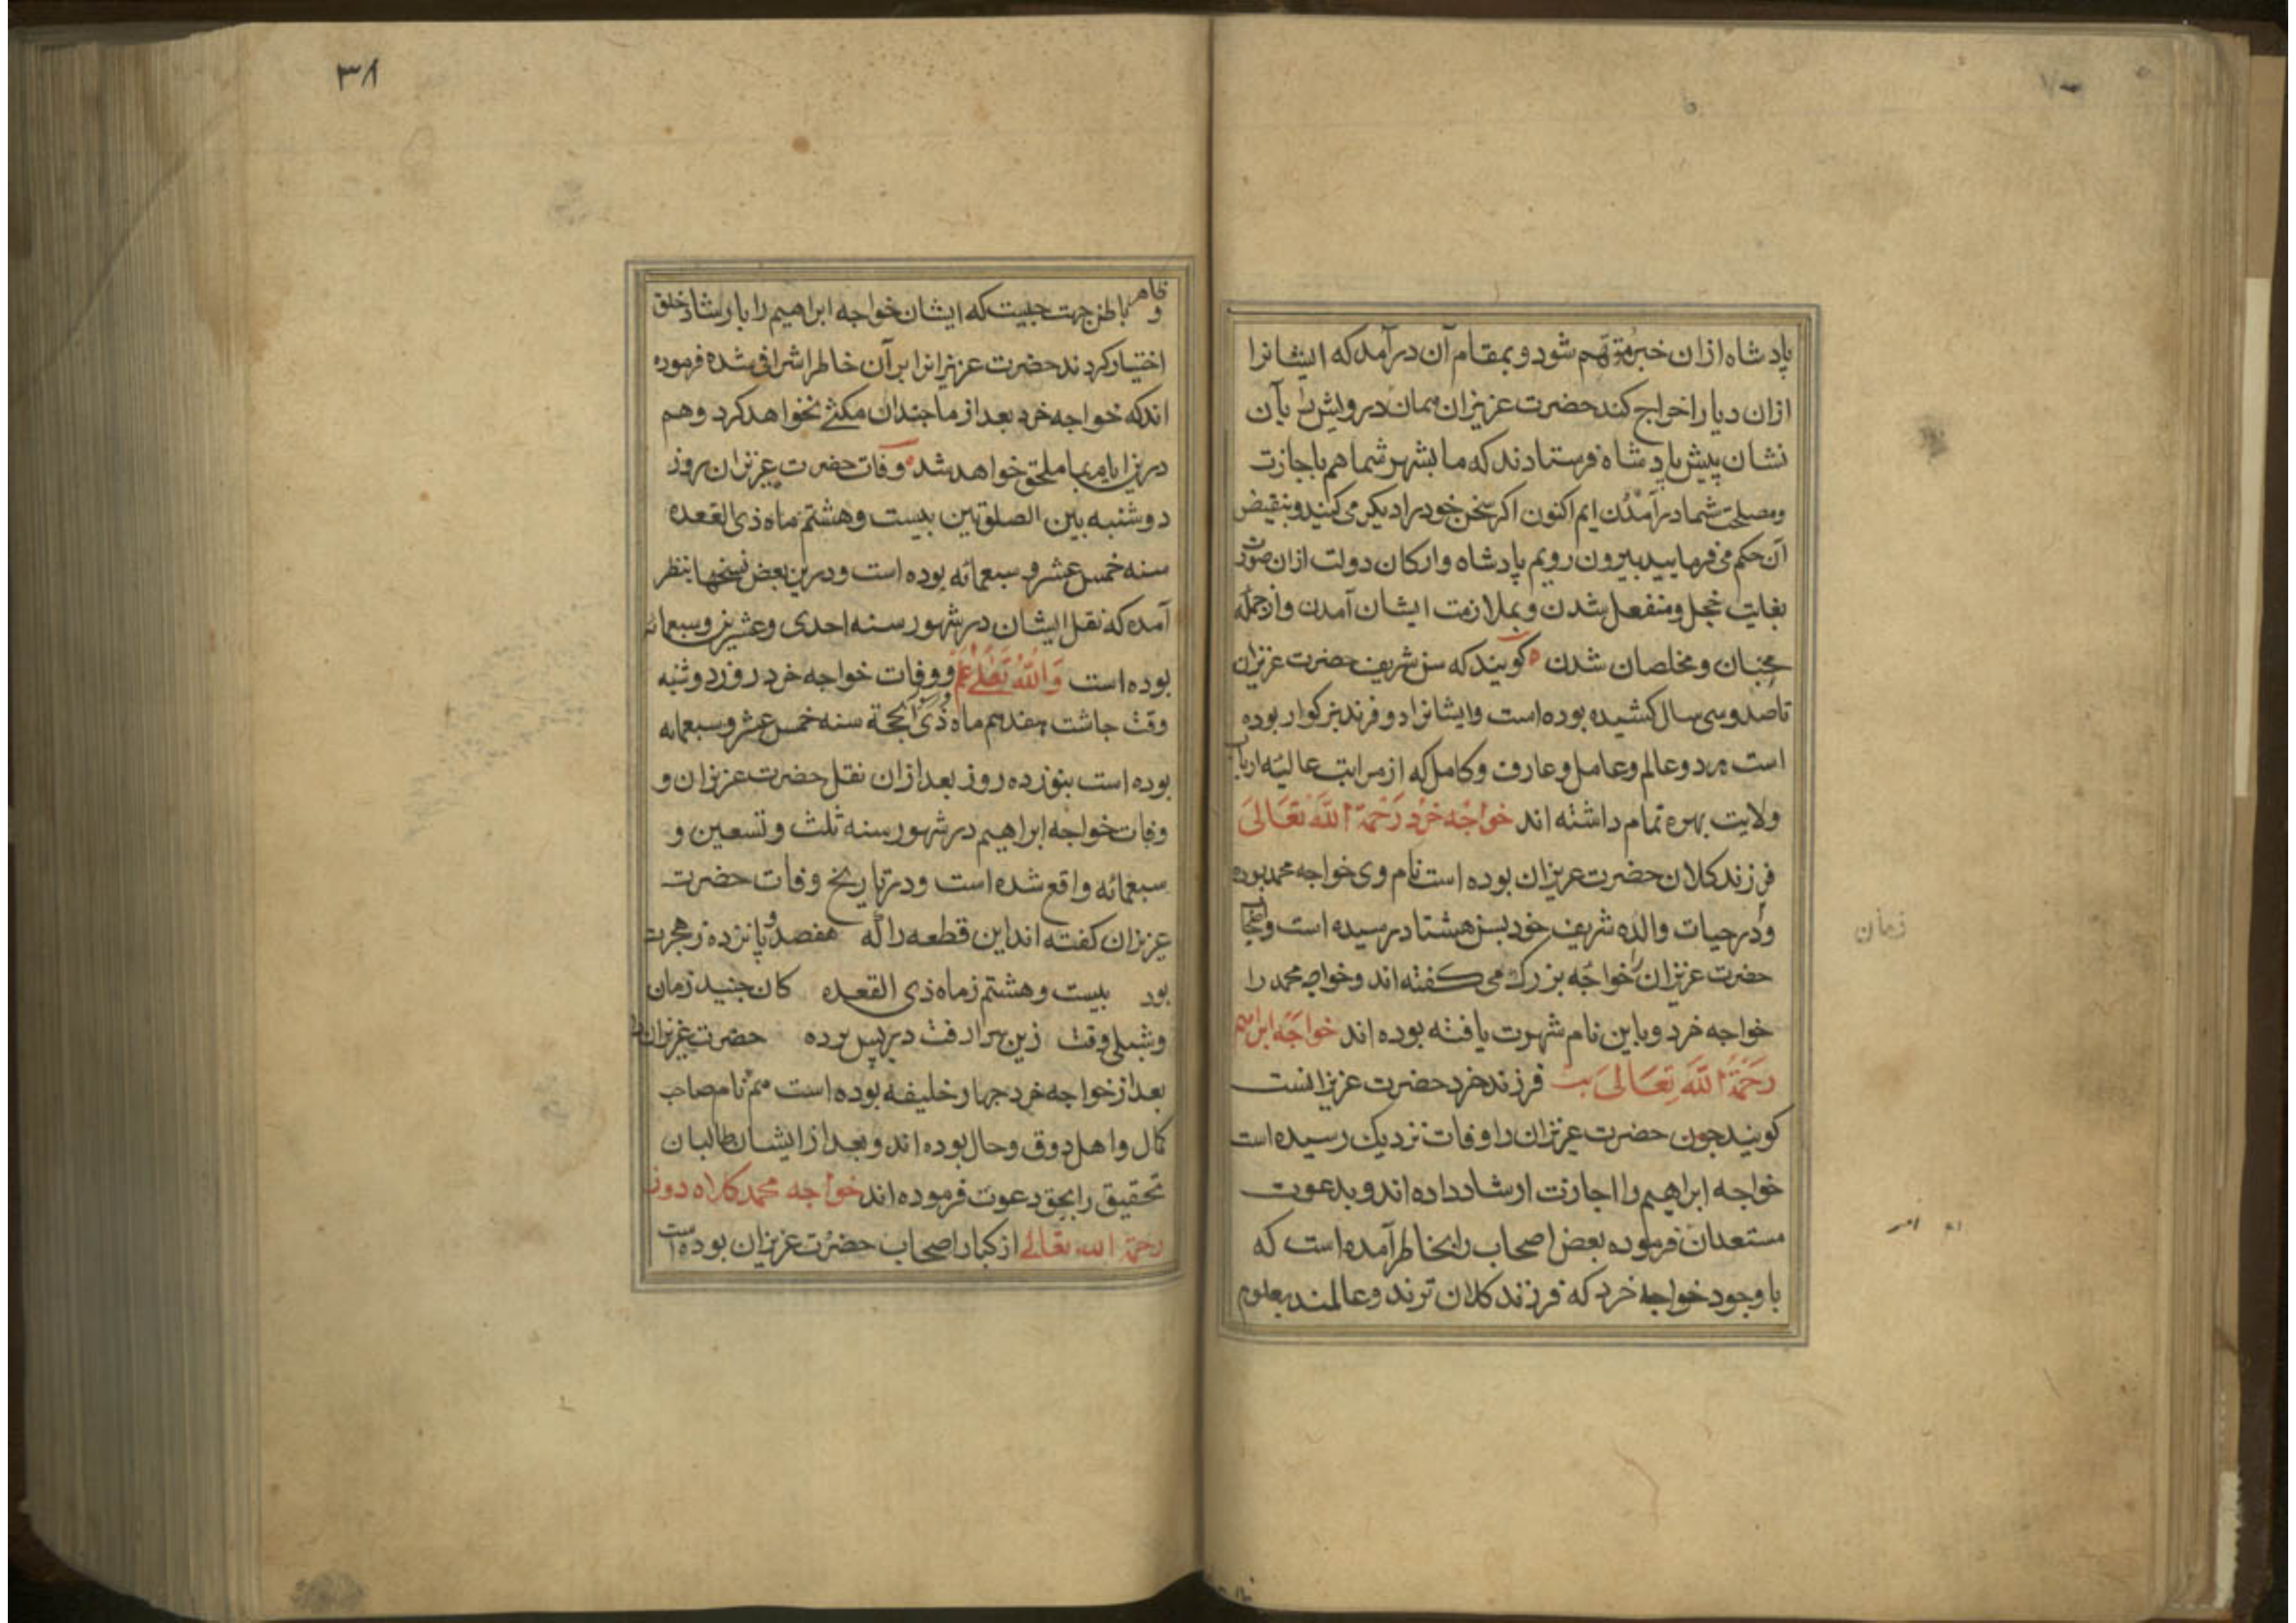 پادشاه ازان خبر متوهم شود و بمقام آن درآمد که ایشانرا
ازان دیار اخراج کند حضرت عزیزان همان درویش را بآن
نشان پیش پادشاه فرستادند که ما بشهر شما هم باجازت
ومصلحت شما درآمدن ایم اکنون اکر سخن خود را دیکر می کنید و بنقیض
آن حکم می فرمایید بیرون رویم پادشاه وارکان دولت ازان صورت
بغایت خجل ومنفعل شدن و بملازمت ایشان آمدن وازجمله
محبان ومخلصان شدن کویند که سن شریف حضرت عزیزان
تا صد وسی سال کشیده بوده است وایشانرا دو فرزند بزرکوار بوده
است هر دو عالم وعامل وعارف وکامل که از مراتب عالیه ارباب
ولایت بهره تمام داشته اند خواجه خرد رحمة الله تعالی
فرزند کلان حضرت عزیزان بوده است نام وی خواجه محمد بوده
ودر حیات والده شریف خود بسن هشتاد رسیده است و اصحاب
حضرت عزیزان را خواجه بزرک می کفته اند وخواجه محمد را
خواجه خرد وباین نام شهرت یافته بوده اند خواجه ابراهیم
رحمة الله تعالی فرزند خرد حضرت عزیزانست
کویند جون حضرت عزیزان را وفات نزدیک رسیده است
خواجه ابراهیم را اجازت ارشاد داده اند و بدعوت
مستعدان فرموده بعض اصحاب را بخاطر آمده است که
با وجود خواجه خرد که فرزند کلان ترند وعالمند بعلوم
زمان
۳۸
ظاهر
و باطن جهت جیست که ایشان خواجه ابراهیم را بارشاد خلق
اختیار کردند حضرت عزیزانرا بر آن خاطر اشرافی شده فرموده
اند که خواجه خرد بعد از ما جندان مکثی نخواهد کرد وهم
درین ایام بما ملحق خواهد شد وفات حضرت عزیزان روز
دوشنبه بین الصلوتین بیست وهشتم ماه ذی القعده
سنه خمس عشر و سبعمائه بوده است ودرین بعض نسخها بنظر
آمده که نقل ایشان در شهور سنه احدی وعشرین وسبعمائه
بوده است والله تعالی اعلم ووفات خواجه خرد روز دوشنبه
وقت جاشت هفدهم ماه ذی الحجة سنه خمس عشر وسبعمائه
بوده است بنوزده روز بعد ازان نقل حضرت عزیزان و
وفات خواجه ابراهیم در شهور سنه ثلث وتسعین و
سبعمائه واقع شده است ودر تاریخ وفات حضرت
عزیزان کفته اند این قطعه را که هفصد و پانزده ز هجرت
بود بیست وهشتم ز ماه ذی القعده کان جنید زمان
وشبلی وقت زین سرا رفت در پس پرده حضرت عزیزان را
بعد از خواجه خرد جهار خلیفه بوده است هم نام صاحب
کمال واهل ذوق وحال بوده اند وبعد از ایشان طالبان
تحقیق را بحق دعوت فرموده اند خواجه محمد کلاه دوز
رحمة الله تعالی از کبار اصحاب حضرت عزیزان بوده است